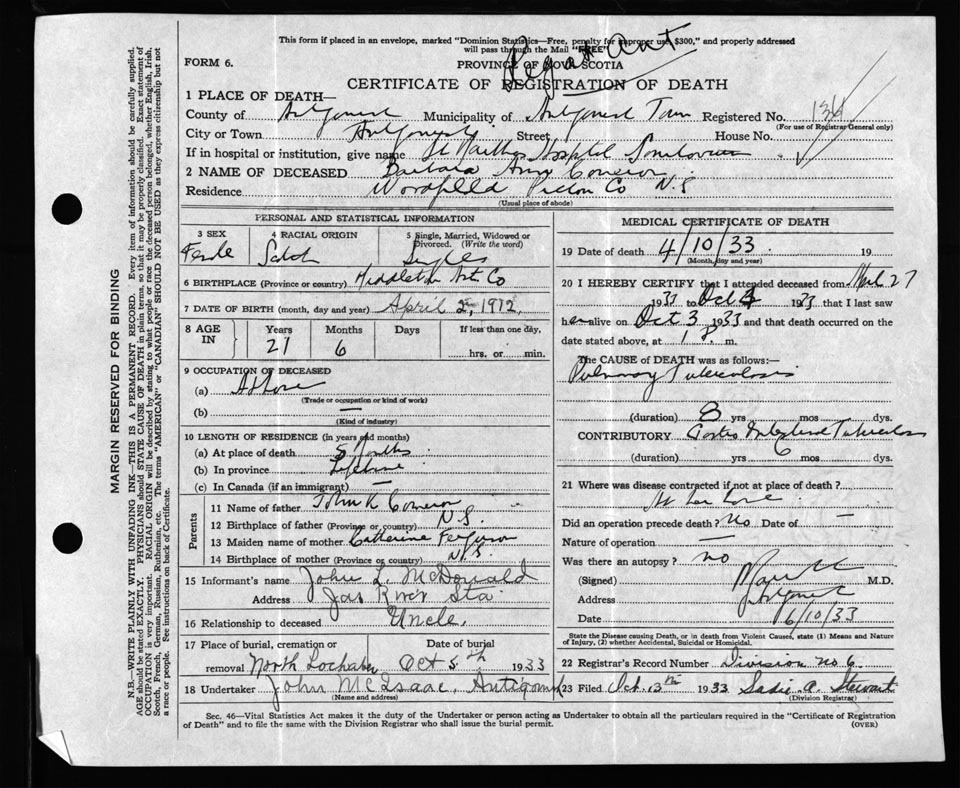 This form if placed in an envelope, marked "Dominion Statistics—Free, penalty for improper use, $300," and properly addressed
will pass through the Mail "FREE"
Reg at Ant
FORM 6.
PROVINCE OF NOVA SCOTIA
CERTIFICATE OF REGISTRATION OF DEATH
1 PLACE OF DEATH—
County of Antigonish Municipality of Antigonish Town Registered No. 134
(For use of Registrar General only)
City or Town Antigonish Street House No.
If in hospital or institution, give name St Marthas Hospital
2 NAME OF DECEASED Barbara Ann Cameron
Residence Woodfield Pictou Co N.S
(Usual place of abode)
PERSONAL AND STATISTICAL INFORMATION
3 SEX
4 RACIAL ORIGIN
5 Single, Married, Widowed or
Divorced. (Write the word)
Female Scotch Single
6 BIRTHPLACE (Province or country) Middleton Ant Co
7 DATE OF BIRTH (month, day and year) April 2, 1912
8 AGE IN
Years Months Days If less than one day,
21 6 hrs. or min.
9 OCCUPATION OF DECEASED
(a) At Home
(Trade or occupation or kind of work)
(b) —
(Kind of industry)
10 LENGTH OF RESIDENCE (in years and months)
(a) At place of death 5 Months
(b) In province Lifetime
(c) In Canada (if an immigrant) —
Parents
11 Name of father John K Cameron
12 Birthplace of father (Province or country) N.S.
13 Maiden name of mother Catherine Ferguson
14 Birthplace of mother (Province or country) N.S.
15 Informant's name John L. McDonald
Address Jas River Sta
16 Relationship to deceased Uncle
17 Place of burial, cremation or removal North Lochaber Date of burial Oct 5th 1933
18 Undertaker John McIsaac, Antigonish
(Name and address)
MEDICAL CERTIFICATE OF DEATH
19 Date of death 4/10/33 19
(Month, day and year)
20 I HEREBY CERTIFY that I attended deceased from 27
1933 to Oct 4 1933 that I last saw
her alive on Oct 3 1933 and that death occurred on the
date stated above, at 1 P. m.
The CAUSE of DEATH was as follows:—
Pulmonary Tuberculosis
(duration) 3 yrs mos dys.
CONTRIBUTORY Gastro Intestinal Tuberculosis
(duration) yrs 6 mos dys.
21 Where was disease contracted if not at place of death?
Did an operation precede death? No Date of —
Nature of operation —
Was there an autopsy? no
(Signed) M.D.
Address Antigonish
Date 6/10/33
State the Disease causing Death, or in death from Violent Causes, state (1) Means and Nature
of Injury, (2) whether Accidental, Suicidal or Homicidal.
22 Registrar's Record Number Division no. 6
23 Filed Oct. 13th 1933 Sadie A. Stewart
(Division Registrar)
Sec. 46—Vital Statistics Act makes it the duty of the Undertaker or person acting as Undertaker to obtain all the particulars required in the "Certificate of Registration
of Death" and to file the same with the Division Registrar who shall issue the burial permit. (OVER)
MARGIN RESERVED FOR BINDING
N.B.—WRITE PLAINLY WITH UNFADING INK—THIS IS A PERMANENT RECORD. Every item of information should be carefully supplied.
AGE should be stated EXACTLY. PHYSICIANS should STATE CAUSE OF DEATH in plain terms, so that it may be properly classified. Exact statement of
OCCUPATION is very important. RACIAL ORIGIN will be described by stating to what people or race the deceased person belonged, whether English, Irish,
Scotch, French, German, Russian, Ruthenian, etc. The terms "AMERICAN" or "CANADIAN" SHOULD NOT BE USED as they express citizenship but not
a race or people. See instructions on back of Certificate.